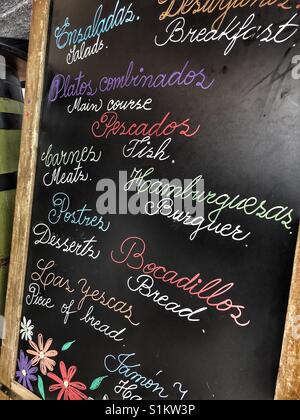 Ensaladas
Salads.
Desayuno
Breakfast
Platos combinados
Main course
Pescados
Fish.
Carnes
Meats.
Hamburguesas
Burguer.
Postres
Desserts
Bocadillos
Bread.
Las yescas
Piece of bread.
Jamón y
alamy
Image ID: S1KW3P
www.alamy.com